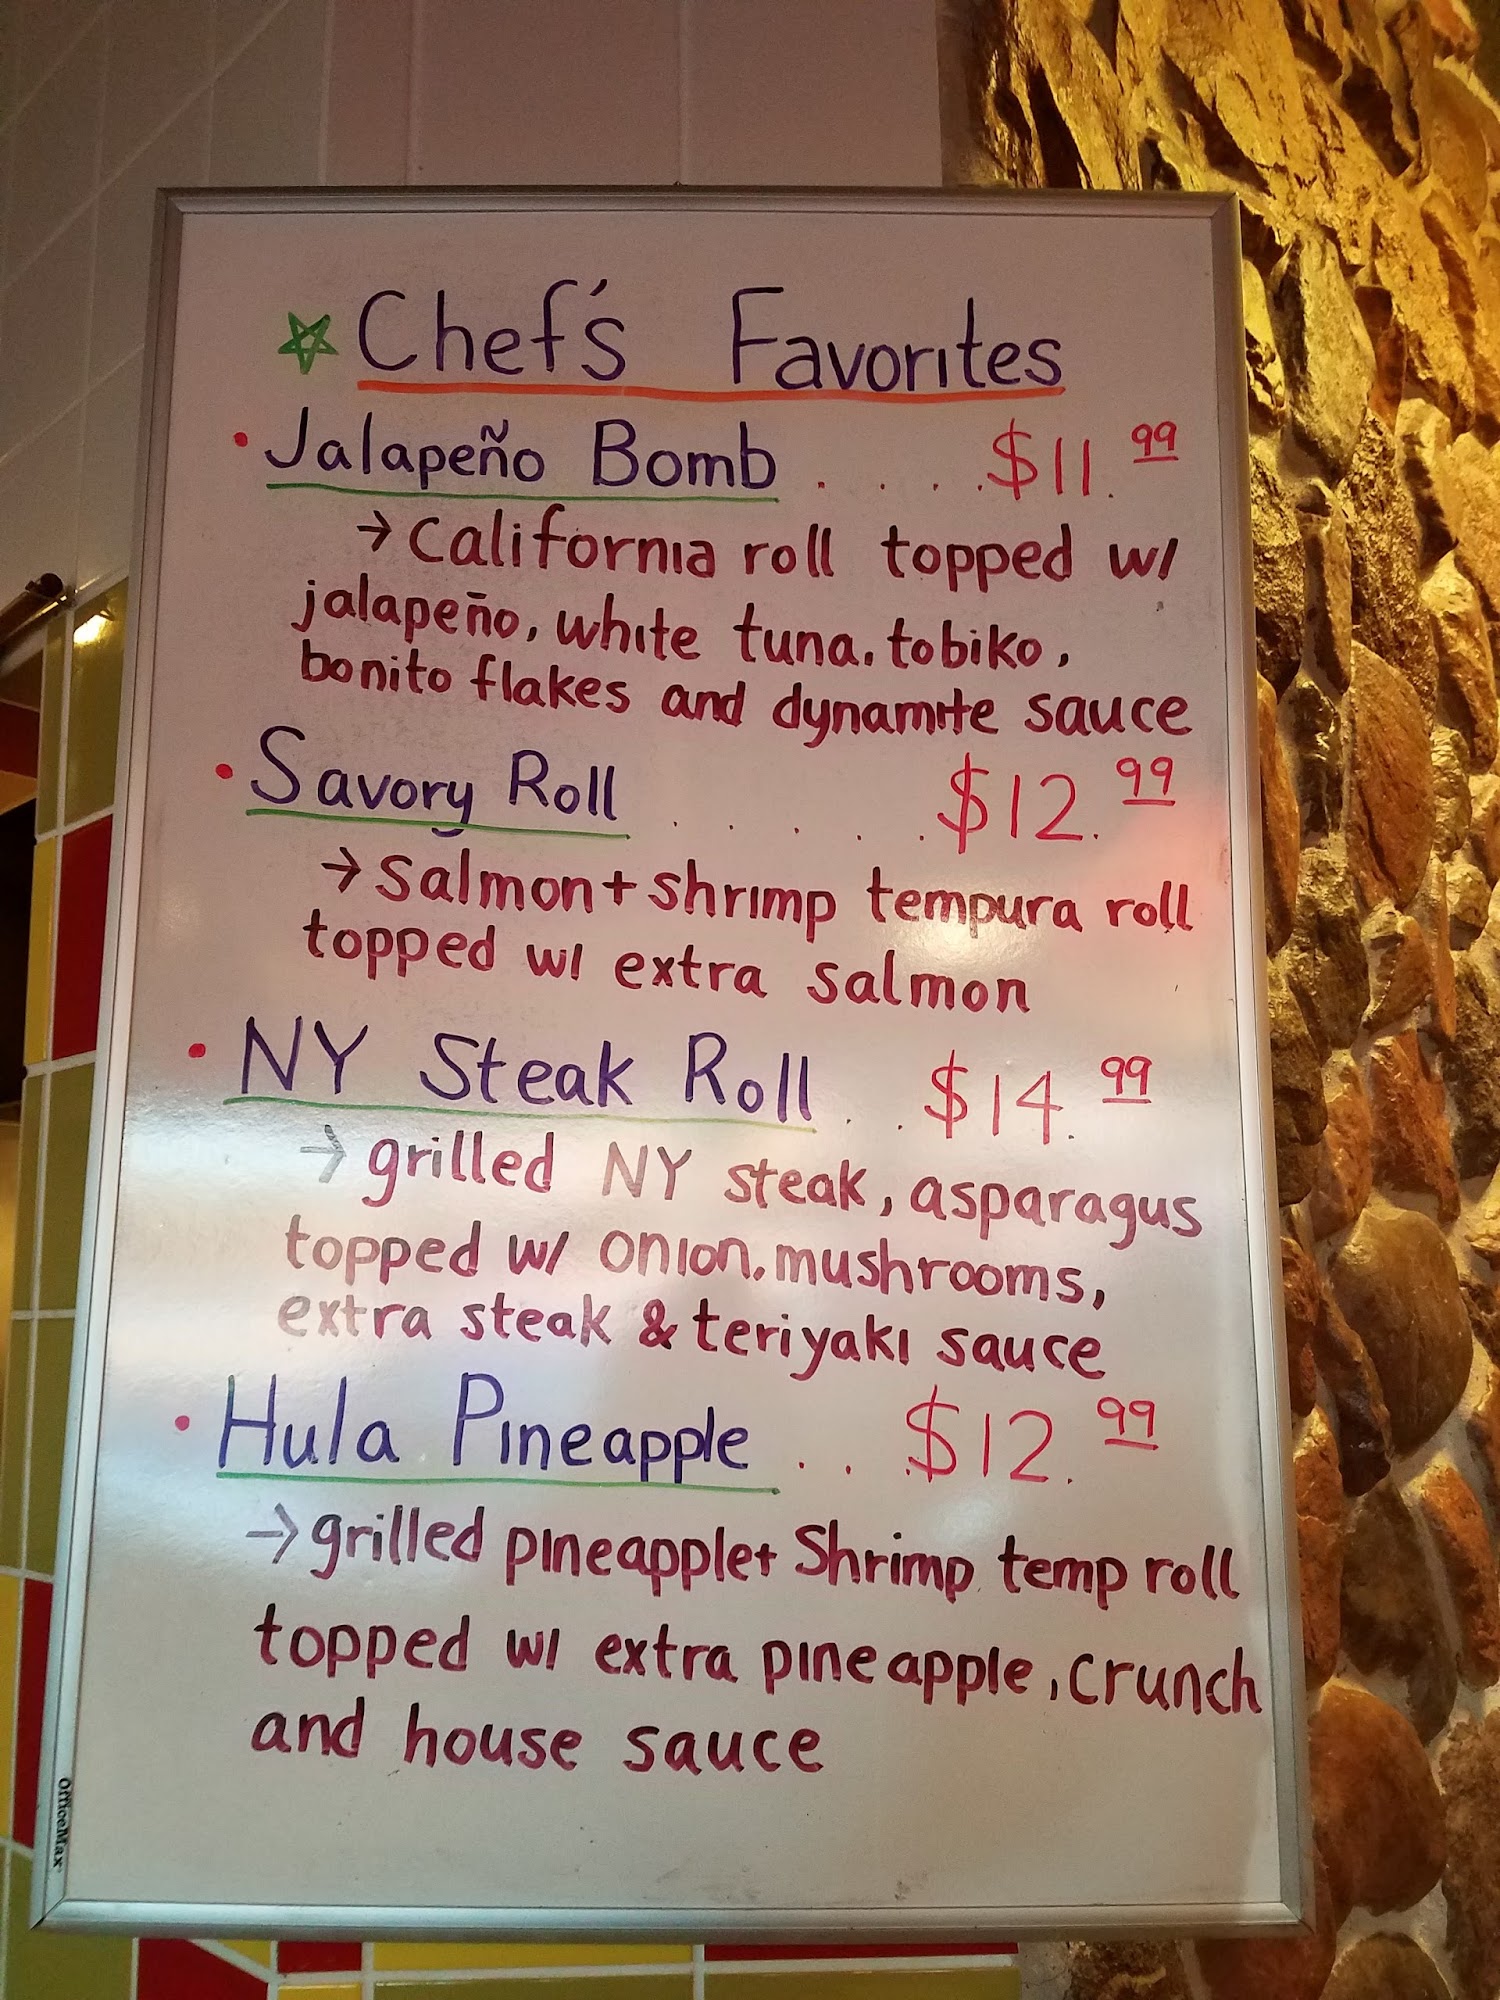 ☆ Chef's Favorites
• Jalapeño Bomb . . . . . $11.99
→ California roll topped w/
jalapeño, white tuna, tobiko,
bonito flakes and dynamite sauce
• Savory Roll . . . . . $12.99
→ Salmon + shrimp tempura roll
topped w/ extra salmon
• NY Steak Roll . . $14.99
→ grilled NY steak, asparagus
topped w/ onion, mushrooms,
extra steak & teriyaki sauce
• Hula Pineapple . . . $12.99
→ grilled pineapple + Shrimp temp roll
topped w/ extra pineapple, crunch
and house sauce
OfficeMax